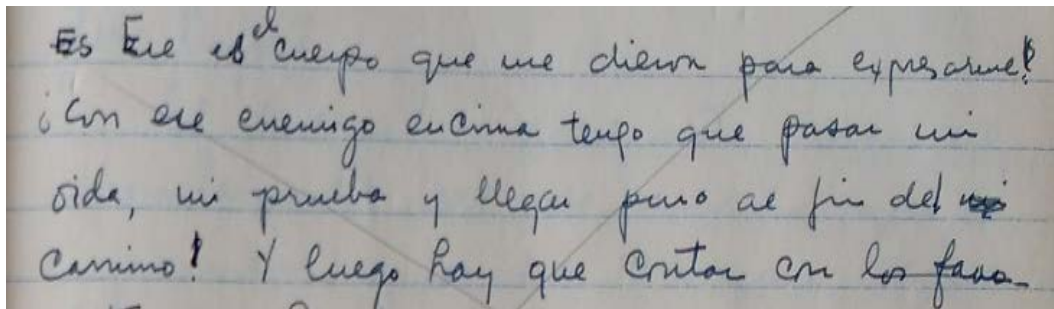 Es Ese es el cuerpo que me dieron para expresarme!
¡Con ese enemigo encima tengo que pasar mi
vida, mi prueba y llegar puro al fin del
camino! Y luego hay que contar con los fava-